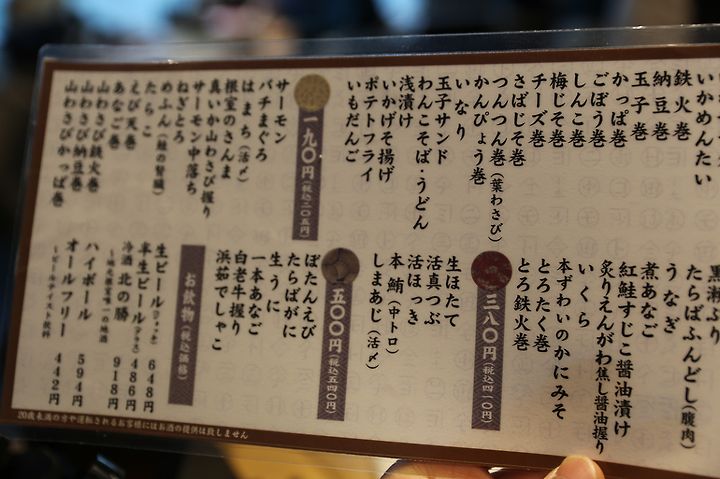 いかめんたい
鉄火巻
納豆巻
玉子巻
かっぱ巻
ごぼう巻
しんこ巻
梅じそ巻
チーズ巻
さばじそ巻
つんつん巻(葉わさび)
かんぴょう巻
いなり
玉子サンド
わんこそば・うどん
浅漬け
いかげそ揚げ
ポテトフライ
いもだんご
一九〇円(税込二〇五円)
サーモン
バチまぐろ
はまち(活〆)
根室のさんま
真いか山わさび握り
サーモン中落ち
ねぎとろ
めふん(鮭の腎臓)
たらこ
えび天巻
あなご巻
山わさび鉄火巻
山わさび納豆巻
山わさびかっぱ巻
黒瀬ぶり
たらばふんどし(腹肉)
うなぎ
煮あなご
紅鮭すじこ醤油漬け
炙りえんがわ焦し醤油握り
いくら
本ずわいのかにみそ
とろたく巻
とろ鉄火巻
三八〇円(税込四一〇円)
生ほたて
活真つぶ
活ほっき
本鮪(中トロ)
しまあじ(活〆)
五〇〇円(税込五四〇円)
ぼたんえび
たらばがに
生うに
一本あなご
白老牛握り
浜茹でしゃこ
お飲物(税込価格)
生ビール(ジョッキ) 648円
半生ビール(グラス) 486円
冷酒 北の勝 918円
〜地元根室唯一の地酒
ハイボール 594円
オールフリー 442円
〜ビールテイスト飲料
20歳未満の方や運転されるお客様にはお酒の提供は致しません